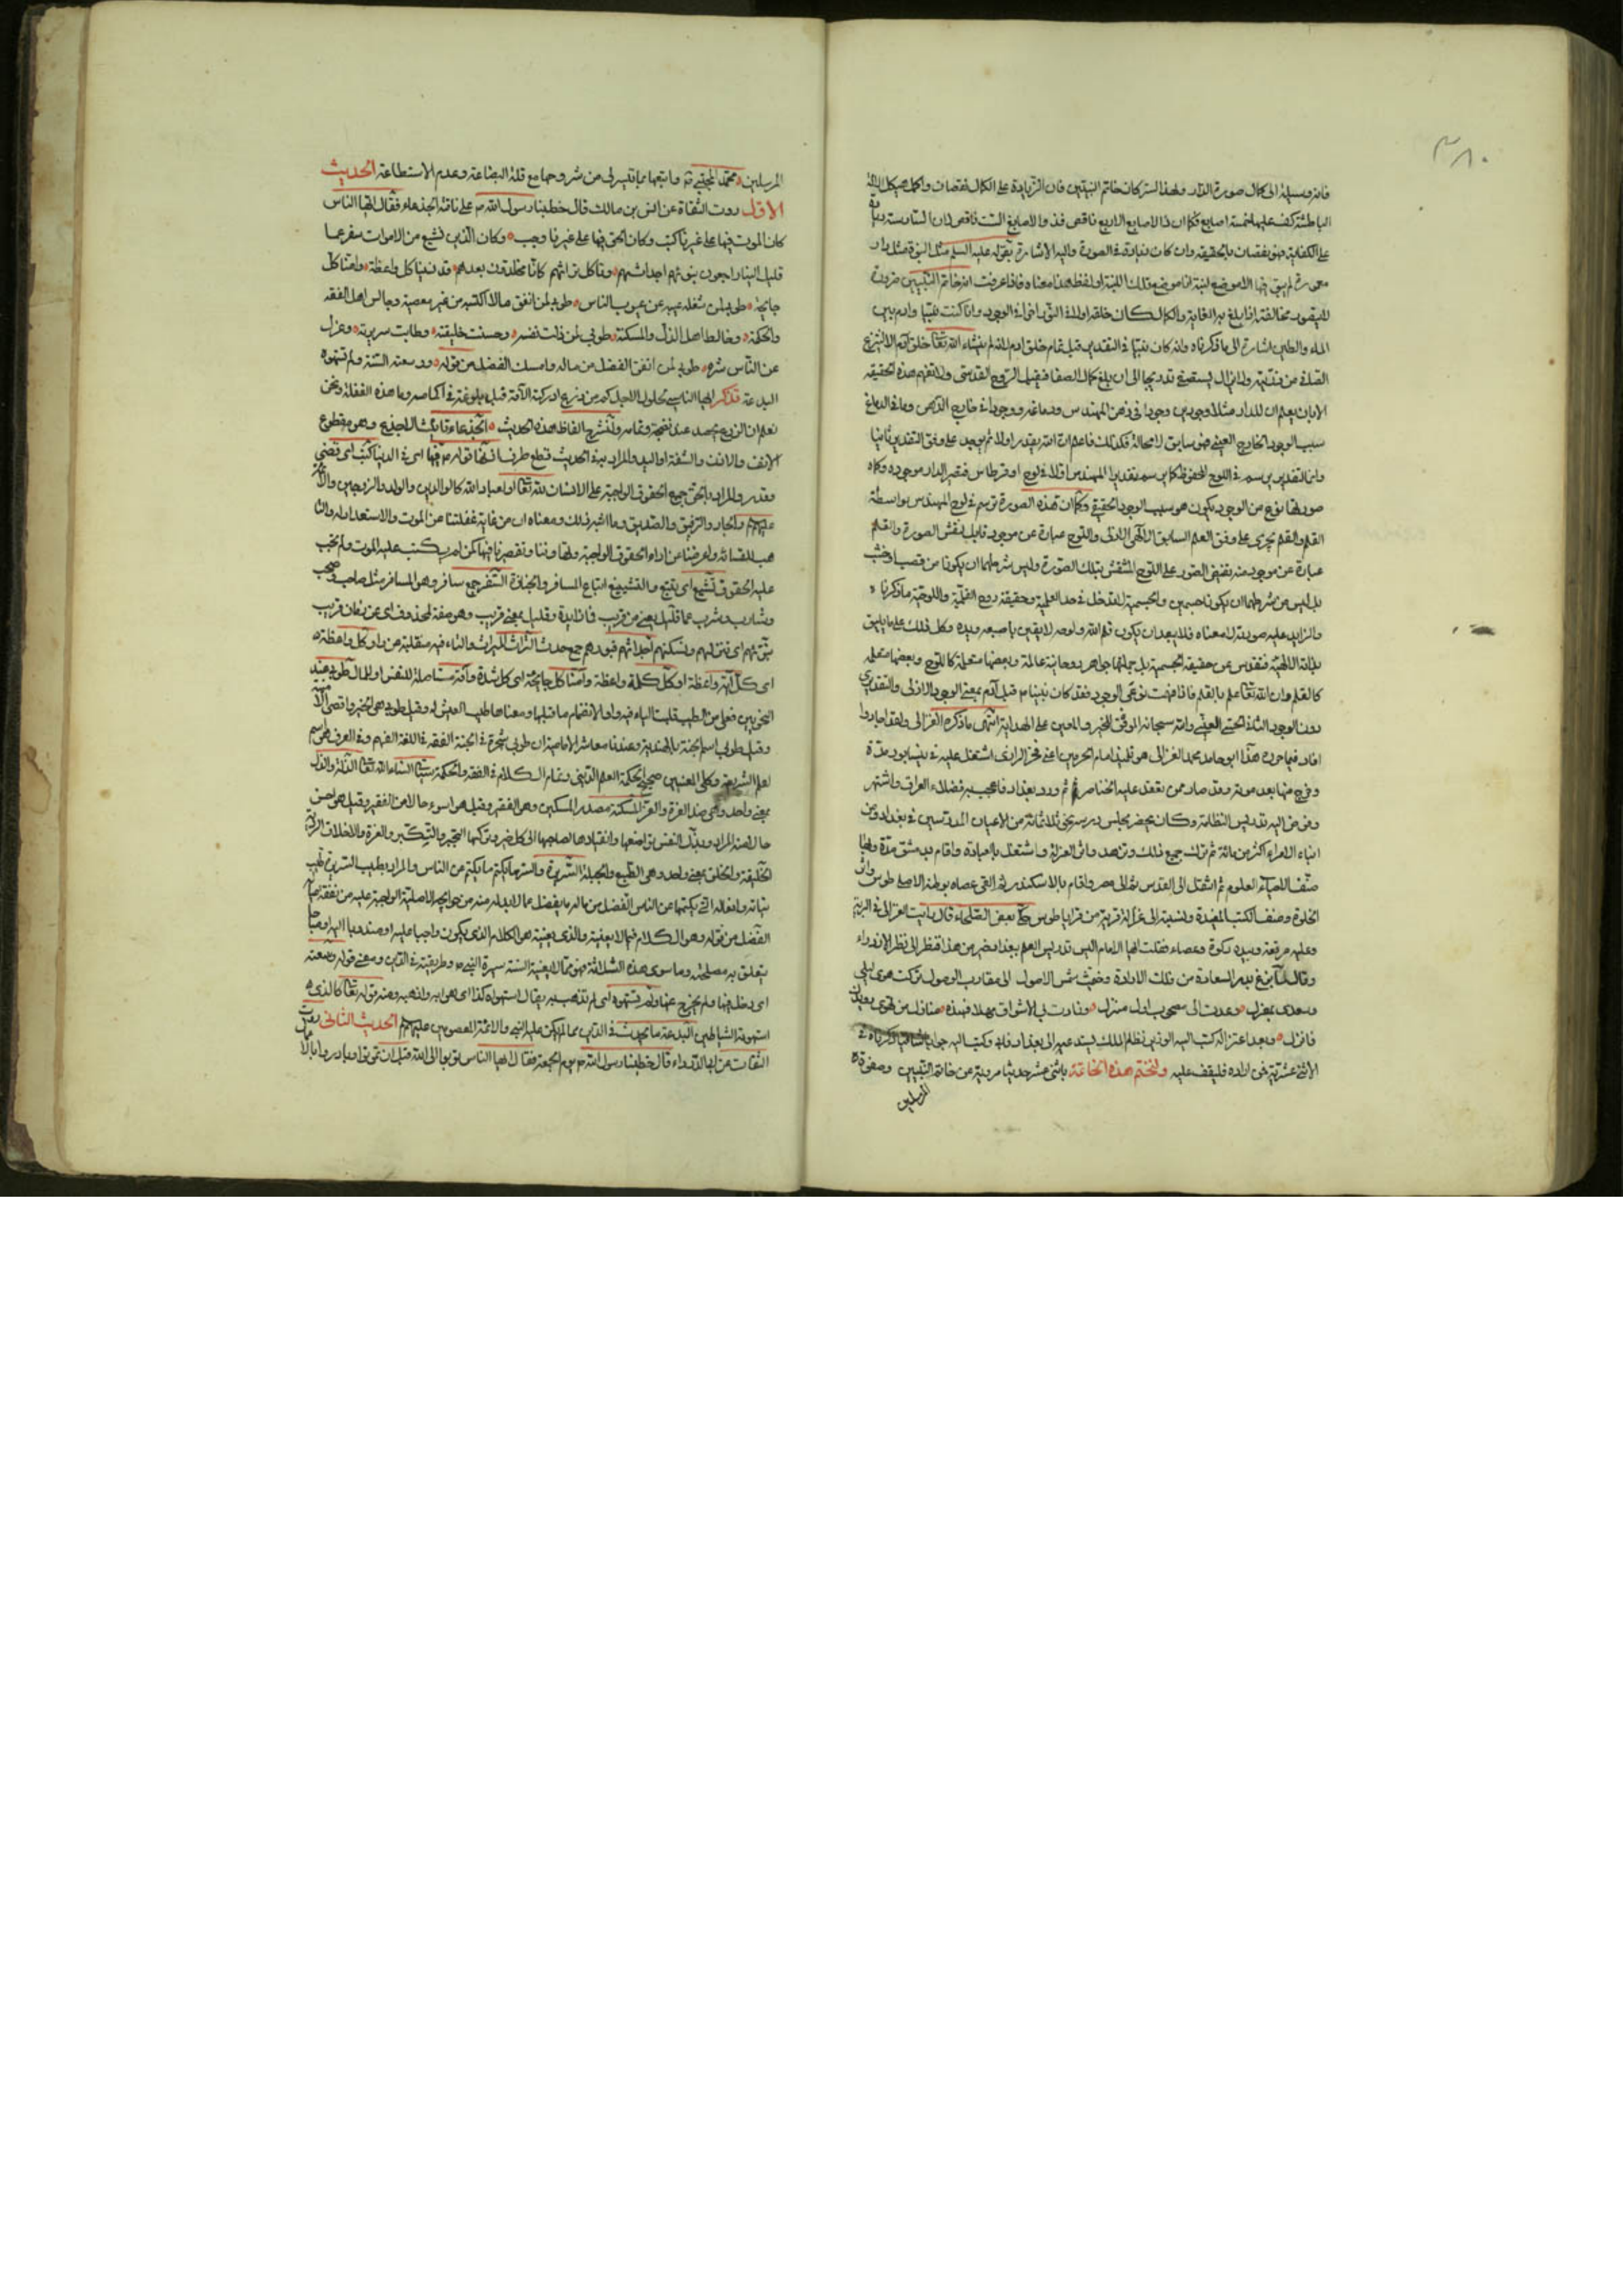 ٣٨٠
فانه وسيلة الى كمال صورة الدار ولهذا السر كان خاتم النبيين فان الزيادة على الكمال نقصان وكمال شكل الالة
الباطشة كف عليها خمسة اصابع فكما ان ذا الاصابع الاربع ناقص فذو الاصابع الست ناقص لان السادسة زيادة
على الكفاية فهو نقصان بالحقيقة وان كان زيادة في الصورة واليه الاشارة بقوله عليه السلم مثل النبوة مثل دار
معمورة لم يبق فيها الا موضع لبنة انا موضع تلك اللبنة او لفظ هذا معناه فاذا عرفت انه خاتم النبيين ضرورة
اذا بلغ به الغاية والكمال كان خلقه اولا في التقدير اخرا في الوجود وانا كنت نبيا وادم بين
الماء والطين اشارة الى ما ذكرناه وانه كان نبيا في التقدير قبل تمام خلق ادم لانه لم ينشاء الله تعالى خلق آدم الا لينتزع
من ذريته ولا يزال يستصفى تدريجا الى ان بلغ كمال الصفا فيقبل الروح القدسي ولا تفهم هذه الحقيقة
الا بان يعلم ان للدار مثلا وجودين وجودا في ذهن المهندس ودماغه ووجودا في خارج الذهن وما في الدماغ
سبب الوجود الخارج العيني فهو سابق لا محالة فكذلك فاعلم ان الله يقدر اولا ثم يوجد على وفق التقدير ثانيا
وان التقدير يرسم في اللوح المحفوظ كما يرسم تقدير المهندس اولا في لوح او قرطاس فتصير الدار موجودة بكمال
صورتها نوع من الوجود يكون هو سبب الوجود الحقيقي وكما ان هذه الصورة ترسم في لوح المهندس بواسطة
القلم والقلم يجري على وفق العلم السابق الالهي الازلي واللوح عبارة عن موجود قابل نقش الصورة والقلم
عبارة عن موجود منه يفيض الصور على اللوح المنتقش بتلك الصورة وليس شرطهما ان يكونا من قصب او خشب
بل ليس من شرطهما ان يكونا جسمين والجسمية لا تدخل في حد القلمية وحقيقة روح القلمية واللوحية ما ذكرنا
والزايد عليه صورته لا معناه فلا يبعد ان يكون قلم الله ولوحه لايقين باصبعه ويده وكل ذلك على ما يليق
بذاته الالهية فتقدس عن حقيقة الجسمية بل جملتها جواهر روحانية عالمة وبعضها متعلمة كاللوح وبعضها معلمة
كالقلم وان الله تعالى علم بالقلم فاذا فهمت نوعي الوجود فقد كان نبينا ص قبل آدم بمعنى الوجود الاولى والتقديري
دون الوجود الثاني الحسي العيني والله سبحانه الموفق للخير والمعين على الهداية انتهى ما ذكره الغزالى ولقد اجاد وا
افاد فيما حرره هذا ابو حامد محمد الغزالى هو تلميذ امام الحرمين اعني فخر الرازي اشتغل عليه في نيسابور مدة
وخرج منها بعد موته وقد صار ممن تعقد عليه الخناصر ثم ورد بغداد فاعجب به فضلاء العراق واشتهر
وفوض اليه تدريس النظامية وكان يحضر مجلس درسه نحو ثلاثمائة من الاعيان المدرسين في بغداد ومن
ابناء الامراء اكثر من مائة ثم ترك جميع ذلك وتزهد واثر العزلة واشتغل بالعبادة واقام بدمشق مدة وبها
صنف الاحياء العلوم ثم انتقل الى القدس ثم الى مصر واقام بالاسكندرية ثم القى عصاه بوطنه الاصلي طوس واثر
الخلوة وصنف الكتب المفيدة ونسبته الى غزالة قرية من قرايا طوس حكى بعض الصلحاء قال رايت الغزالى في البرية
وعليه مرقعة وبيده ركوة وعصاء فقلت ايها الامام اليس تدريس العلم ببغداد خير من هذا فنظر الى نظر الازدراء
وقال لما بزغ بدر السعادة من فلك الارادة وجنحت شمس الاصول الى مغارب الوصول تركت هوى ليلى
وسعدى بمعزل وعدت الى مصحوب اول منزل ونادت بي الاشواق مهلا فهذه منازل من تهوى رويدك
فانزل وبعد اعتزاله كتب اليه الوزير نظام الملك يستدعيه الى بغداد فابى وكتب اليه جوابا
الاثنى عشرية فمن اراده فليقف عليه ولنختم هذه الخاتمة باثنى عشر حديثا مروية عن خاتم النبيين وصفوة
المرسلين
المرسلين محمد المجتبى ص واتبعها بما تيسر لى من شروحها مع قلة البضاعة وعدم الاستطاعة الحديث
الاول روت الثقاة عن انس بن مالك قال خطبنا رسول الله ص على ناقة الجذعاء فقال ايها الناس
كان الموت فيها على غيرنا كتب وكان الحق فيها على غيرنا وجب وكان الذين نشيع من الاموات سفر عما
قليل الينا راجعون نبوئهم اجداثهم وناكل تراثهم كانا مخلدون بعدهم قد نسينا كل واعظة وامنا كل
جايحة طوبى لمن شغله عيبه عن عيوب الناس طوبى لمن انفق مالا اكتسبه من غير معصية وجالس اهل الفقه
والحكمة وخالط اهل الذل والمسكنة طوبى لمن ذلت نفسه وحسنت خليقته وطابت سريرته وعزل
عن الناس شره طوبى لمن انفق الفضل من ماله وامسك الفضل من قوله ووسعته السنة ولم تستهوه
البدعة تذكر ايها الناسى حلول الاجل كم من زرع ادركته الآفة قبل بلوغه وما هذه الغفلة ونحن
نعلم ان الزرع يحصد عند نضجه وتمامه ولنشرح الفاظ هذه الحديث الجذعاء تانيث الاجذع وهو مقطوع
الانف والاذن والشفة او اليد والمراد به في الحديث قطع طرف اذنها قوله ص فيها اى في الدنيا كتب اى قضى
وقدر والمراد بالحق جميع الحقوق الواجبة على الانسان لله تعالى او لعباد الله كالوالدين والولد والزوجين
والجار والرفيق والصديق وما اشبه ذلك ومعناه ان من غاية غفلتنا عن الموت والاستعداد له
للقائه واعراضنا من اداء الحقوق الواجبة وتهاوننا وتقصيرنا فيها كمن لم يكتب عليه الموت ولم تجب
عليه الحقوق نشيع اى نتبع والتشييع اتباع المسافر والجنازة السفر جمع سافر وهو المسافر مثل صاحب وصحب
وشارب وشرب عما قليل بمعنى من قريب فما زايدة وقليل بمعنى قريب وهو صفة لمحذوف اى عن زمان قريب
نبوئهم اى ننزلهم ونسكنهم اجداثهم قبورهم جمع جدث التراث الميراث والتاء فيه منقلبة عن واو كل واعظة
اى كل آية واعظة او كل كلمة واعظة وامنا كل جايحة اى كل شدة وآفة مستاصلة للنفس او المال طوبى عند
النحويين فعلى من الطيب قلبت الياء فيه واوا لانضمام ما قبلها ومعناها طيب العيش له وقيل طوبى هى الخير واقصى
وقيل طوبى اسم الجنة بالهندية وعندنا معاشر الامامية ان طوبى شجرة في الجنة الفقه في اللغة الفهم وفي العرف هو اسم
لعلم الشريعة وكلى المعنيين صحيح الحكمة العلم الدينى وتمام الكلام في الفقه والحكمة سيأتى انشاء الله تعالى الذلة والذل
بمعنى واحد وهى ضد العزة والعز المسكنة مصدر المسكين وهو الفقير وقيل هو اسوء حالا من الفقير وقيل هو احسن
حالا منه المراد بذل النفس تواضعها وانقيادها لصاحبها الى كل خير وتركها التجبر والتكبر والعزة والاخلاق الردية
الخليقة والخلق بمعنى واحد وهى الطبع والجبلة السريرة والسر ما يكتم من الناس والمراد بطيب السريرة طيب
نياته وافعاله التي يكتمها عن الناس الفضل من ماله ما يفضل عما لا بد له منه من حوايجه الاصلية الواجبة عليه من نفقة
الفضل من قوله وهو الكلام فيما لا يعنيه والذى يعنيه هو الكلام الذى يكون واجبا عليه او مندوبا اليه او مباحا
يتعلق به مصلحته وما سوى هذه الثلاثة فهو مما لا يعنيه السنة سيرة النبي ص وطريقته في الدين ومعنى قوله وسعته
اى دخل فيها ولم يخرج عنها ولم تستهوه اى لم تذهب به يقال استهواه كذا اى هوا به واذهبه ومنه قوله تعالى كالذى
استهوته الشياطين البدعة ما يحدث في الدين مما لم يكن عليه النبي والائمة المعصومين عليهم الحديث الثانى روت
الثقات عن ابى الدرداء قال خطبنا رسول الله ص يوم الجمعة فقال ايها الناس توبوا الى الله قبل ان تموتوا وبادروا بالا